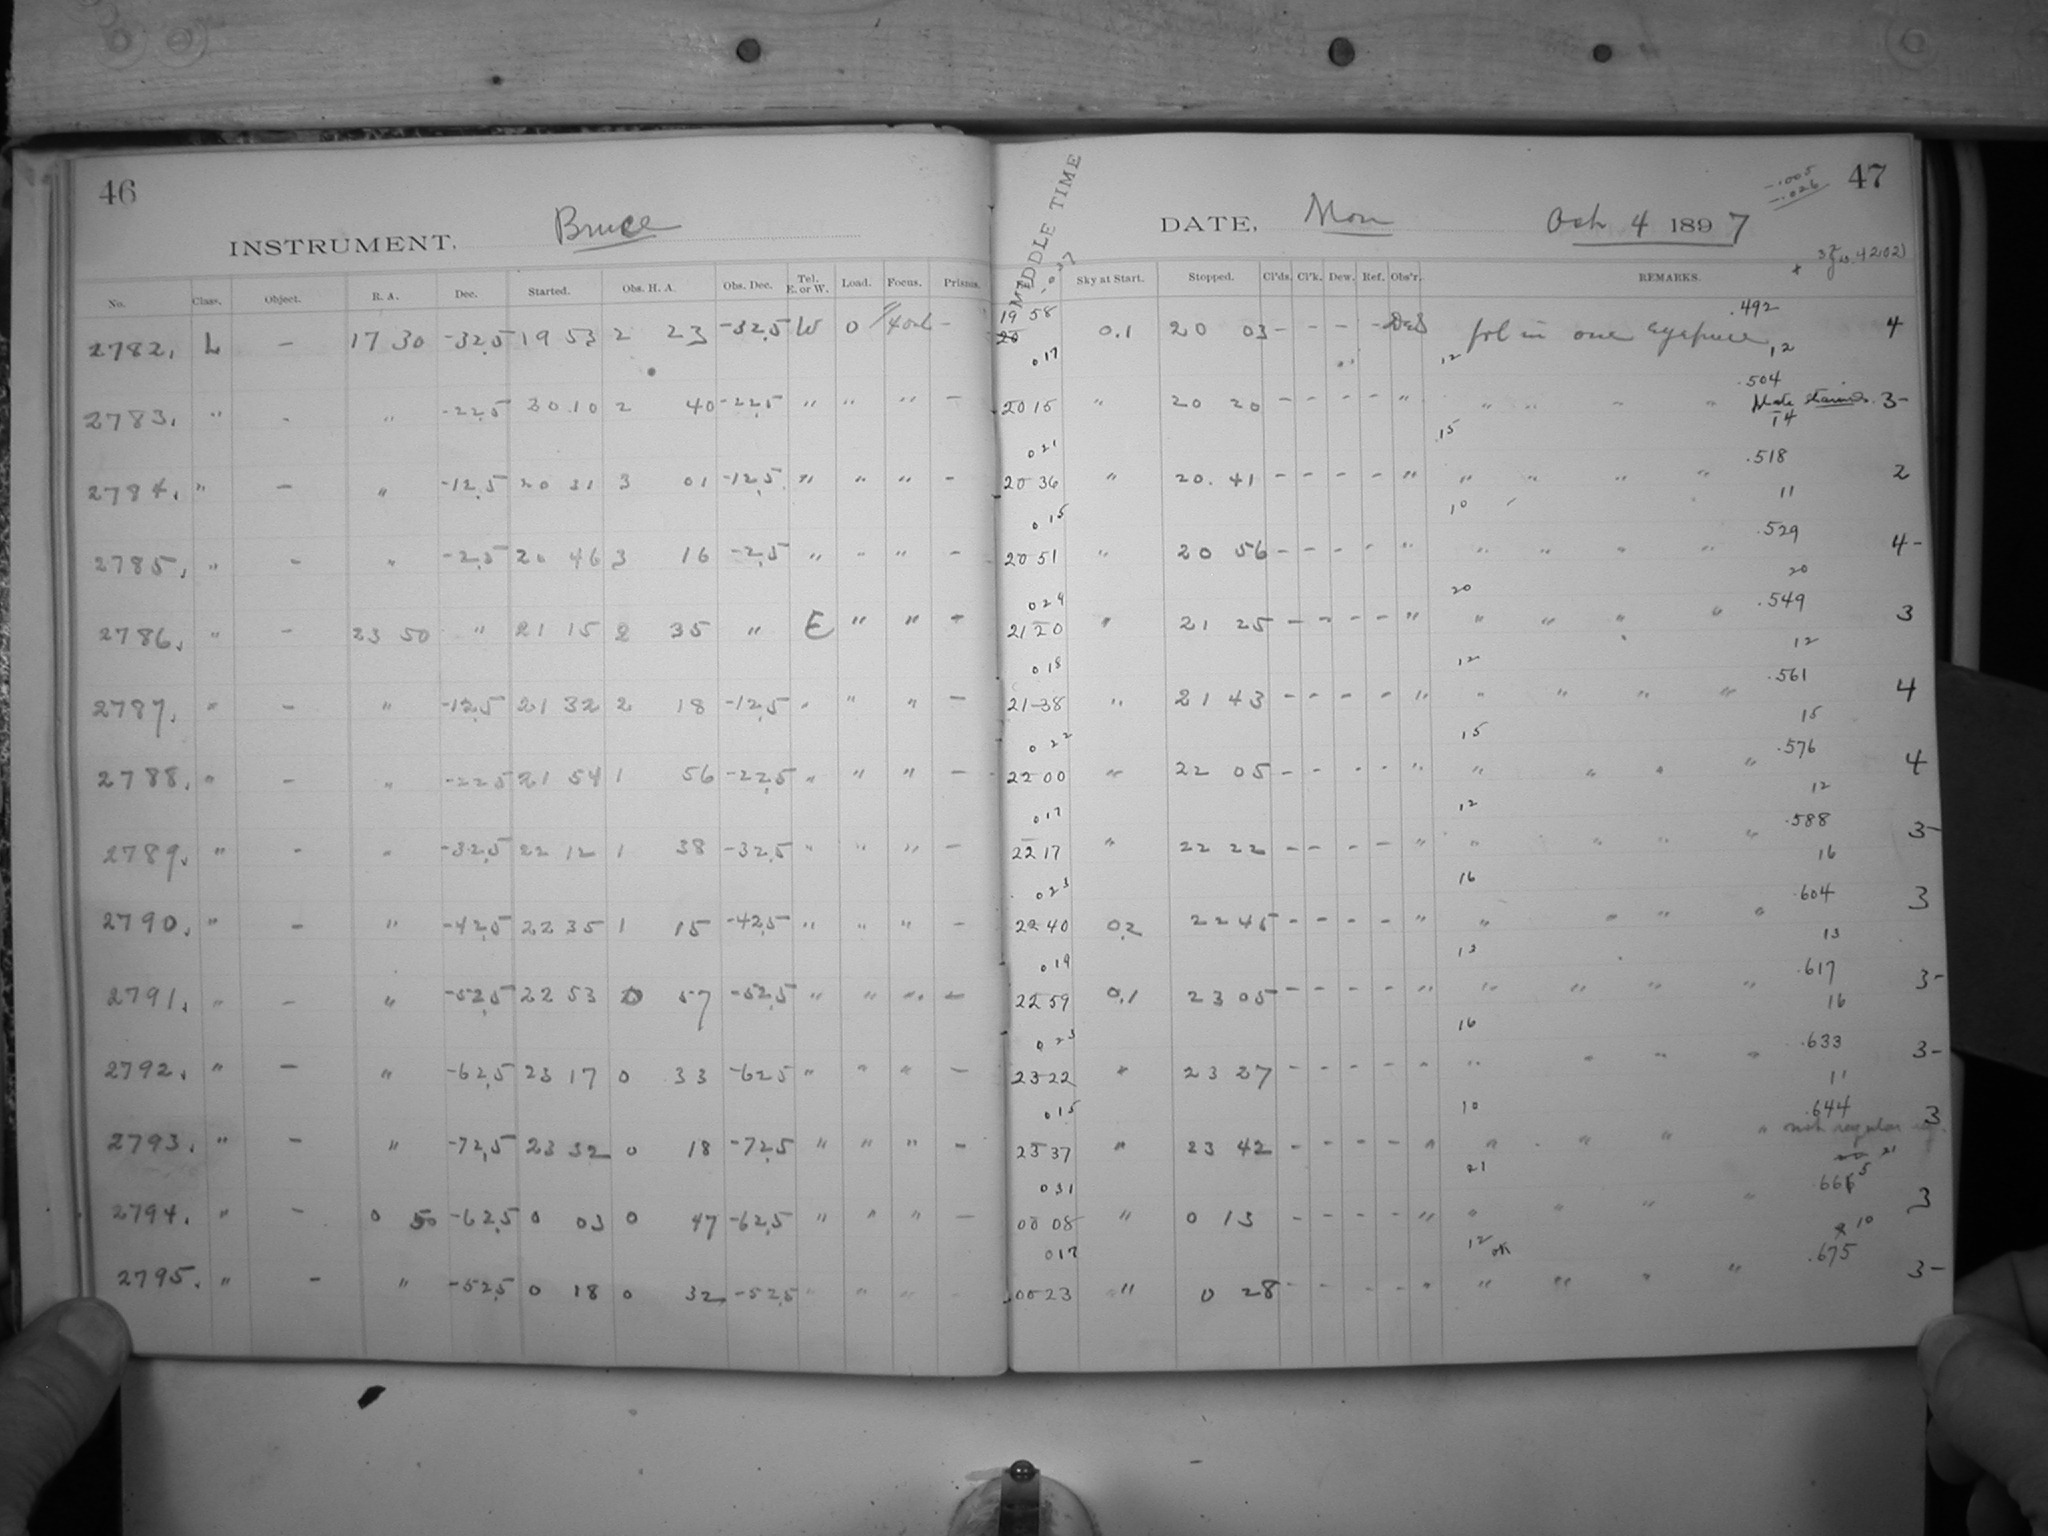 46
INSTRUMENT, Bruce
No. Class. Object. R. A. Dec. Started. Obs. H. A. Obs. Dec. Tel. E. or W. Load. Focus. Prisms.
2782. L — 17 30 -32.5 19 53 2 23 -32.5 W 0 —
2783. " - " -22.5 20 10 2 40 -22.5 " " " —
2784. " — " -12.5 20 31 3 01 -12.5 " " " -
2785. " - " -2.5 20 46 3 16 -2.5 " " " -
2786. " - 23 50 " 21 15 2 35 " E " " -
2787. " — " -12.5 21 32 2 18 -12.5 " " " —
2788. " - " -22.5 21 54 1 56 -22.5 " " " —
2789. " - " -32.5 22 12 1 38 -32.5 " " " —
2790. " — " -42.5 22 35 1 15 -42.5 " " " -
2791. " — " -52.5 22 53 0 57 -52.5 " " " -
2792. " — " -62.5 23 17 0 33 -62.5 " " " —
2793. " — " -72.5 23 32 0 18 -72.5 " " " -
2794. " - 0 50 -62.5 0 03 0 47 -62.5 " " " —
2795. " - " -52.5 0 18 0 32 -52.5 " " "
MIDDLE TIME
47
-.005
-.026
DATE, Mon Oct 4 1897
Sky at Start. Stopped. Cl'ds. Cl'k. Dew. Ref. Obs'r. REMARKS.
.492
19 58 0.1 20 03 - - - - fol in one Eyepiece 4
017 12 12
.504
20 15 " 20 20 - - - - " " " - " Plate stained. 3-
021 15 14
.518
20 36 " 20.41 - - - - " " " " " 2
015 10 11
.529
20 51 " 20 56 - - - - " " " " " 4-
029 20 20
.549
21 20 " 21 25 - - - - " " " " " 3
018 12 12
.561
21 38 " 21 43 - - - - " " " " " 4
022 15 15
.576
22 00 " 22 05 - - - - " " " " " 4
017 12 12
.588
22 17 " 22 22 - - - - " " " " " 3-
023 16 16
.604
22 40 0.2 22 45 - - - - " " " " " 3
019 13 13
.617
22 59 0.1 23 05 - - - - " " " " " 3-
023 16 16
.633
23 22 " 23 27 - - - - " " " " " 3-
015 10 11
.644
23 37 " 23 42 - - - - " " " " " not regular 3
031 21 21
00 08 " 0 13 - - - - " " " " " 3
017 12 10
.675
00 23 " 0 28 - - - - " " " " " 3-